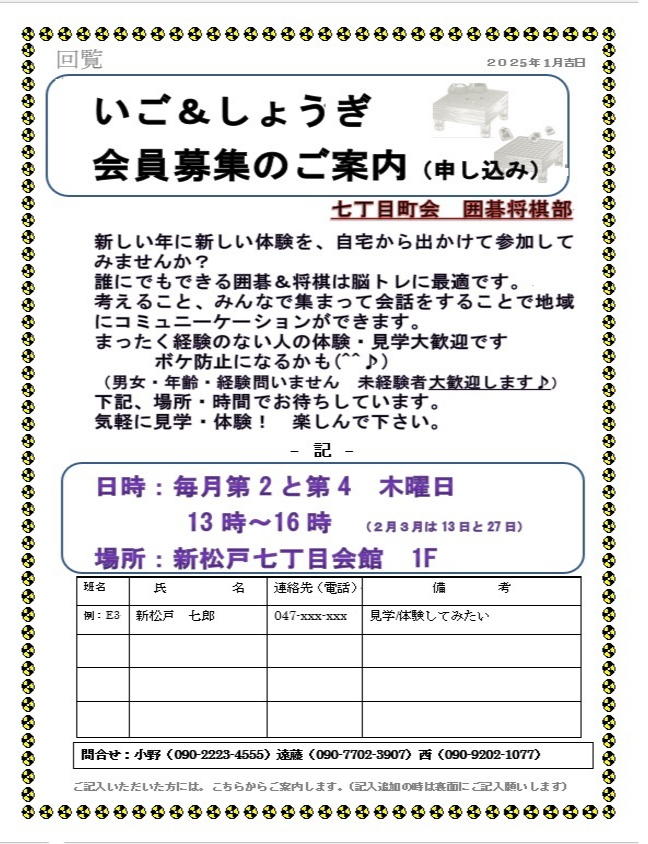 回覧
2025年1月吉日
いご＆しょうぎ
会員募集のご案内（申し込み）
七丁目町会　囲碁将棋部
新しい年に新しい体験を、自宅から出かけて参加して
みませんか？
誰にでもできる囲碁＆将棋は脳トレに最適です。
考えること、みんなで集まって会話をすることで地域
にコミュニーケーションができます。
まったく経験のない人の体験・見学大歓迎です
ボケ防止になるかも(^^♪)
（男女・年齢・経験問いません　未経験者大歓迎します♪）
下記、場所・時間でお待ちしています。
気軽に見学・体験！　楽しんで下さい。
－ 記 －
日時：毎月第2と第4　木曜日
13時～16時　（2月3月は13日と27日）
場所：新松戸七丁目会館　1F
班名　氏　名　連絡先（電話）　備　考
例：E3　新松戸　七郎　047-xxx-xxx　見学/体験してみたい
問合せ：小野（090-2223-4555）遠藤（090-7702-3907）西（090-9202-1077）
ご記入いただいた方には。こちらからご案内します。（記入追加の時は裏面にご記入願いします）